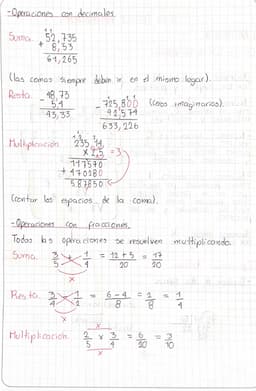 -Operaciones con decimales
Suma. 52,735
+ 8,53
61,265
(las comas siempre deben ir en el mismo lugar).
Resta. - 48,73 - 725,800 (ceros imaginarios).
5,4 92,574
43,33 633,226
Multiplicación. 235,14
x 2,5 = 3
117570
+ 470280
587850
(contar los espacios de la coma).
-Operaciones con fracciones.
Todas las operaciones se resuelven multiplicando.
Suma. 3/5 + 1/4 = 12+5/20 = 17/20
Resta. 3/4 - 1/2 = 6-4/8 = 2/8 = 1/4
x
Multiplicación. 2/5 x 3/4 = 6/20 = 3/10
x